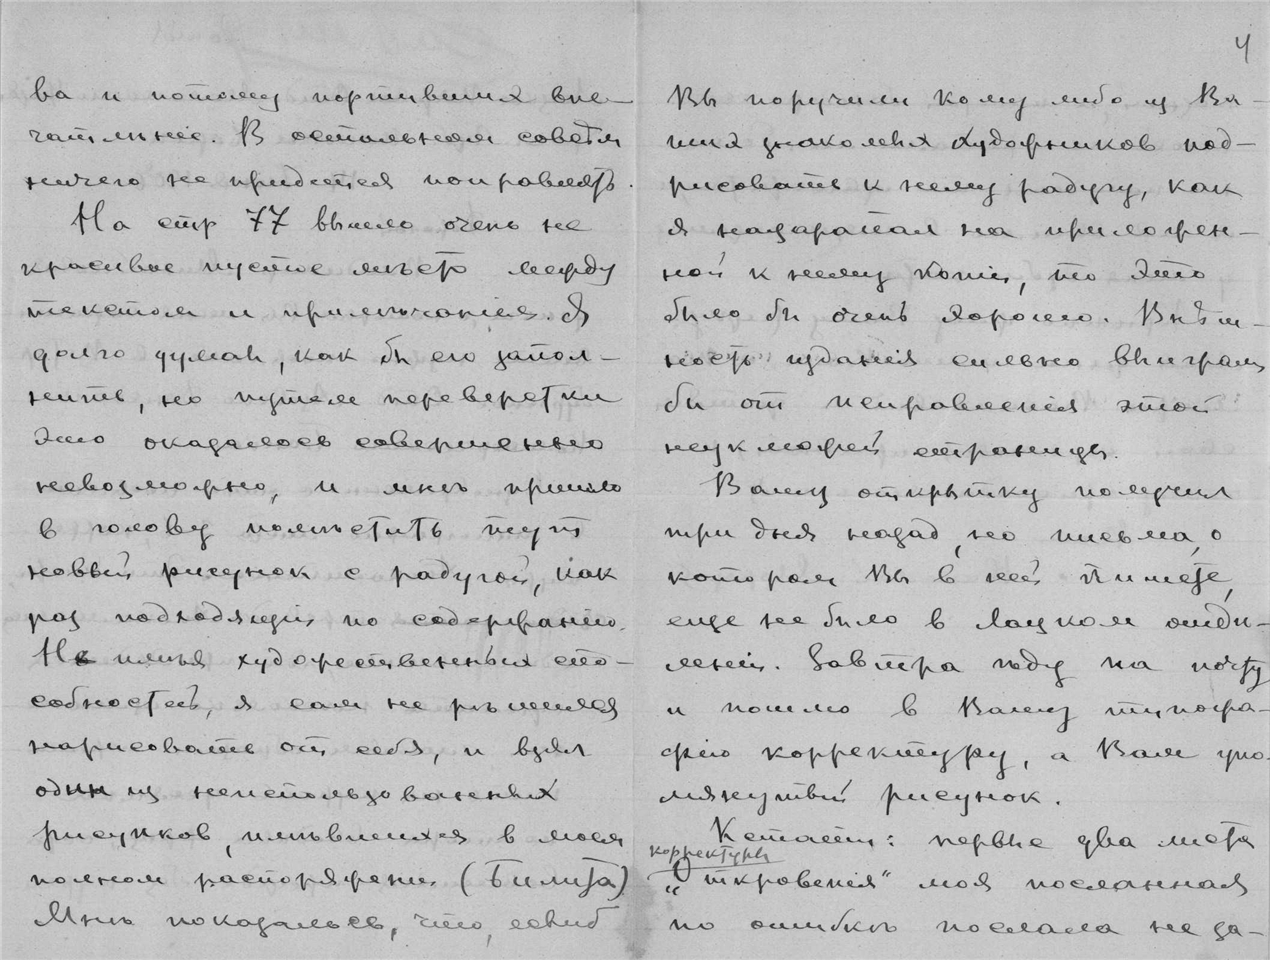 ва и потому портивших впе-
чатлѣніе. В остальном совсѣм
ничего не придется поправлять.
На стр 77 вышло очень не
красивое пустое мѣсто между
текстом и примѣчаніем. Я
долго думал, как бы его запол-
нить, но путем переверстки
это оказалось совершенно
невозможно, и мнѣ пришло
в голову помѣстить тут
новый рисунок с радугой, как
раз подходящій по содержанію.
Не имѣя художественных спо-
собностей, я сам не рѣшился
нарисовать от себя, и взял
один из неиспользованных
рисунков, имѣвшихся в моем
полном распоряженіи (Билита)
Мнѣ показалось, что, еслиб
4
Вы поручили кому либо из Ва-
ших знакомых художников под-
рисовать к нему радугу, как
я нацарапал на приложен-
ной к нему копіи, то это
было бы очень хорошо. Внѣш-
ность изданія сильно выиграла
бы от исправленія этой
неуклюжей страницы.
Вашу открытку получил
три дня назад, но письма, о
котором Вы в ней пишете,
еще не было в Лацком отдѣ-
леніи. Завтра пойду на почту
и пошлю в Вашу типогра-
фію корректуру, а Вам упо-
мянутый рисунок.
Кстати: первые два листа
корректуры
„Откровенія“ моя посланная
по ошибкѣ послала не за-